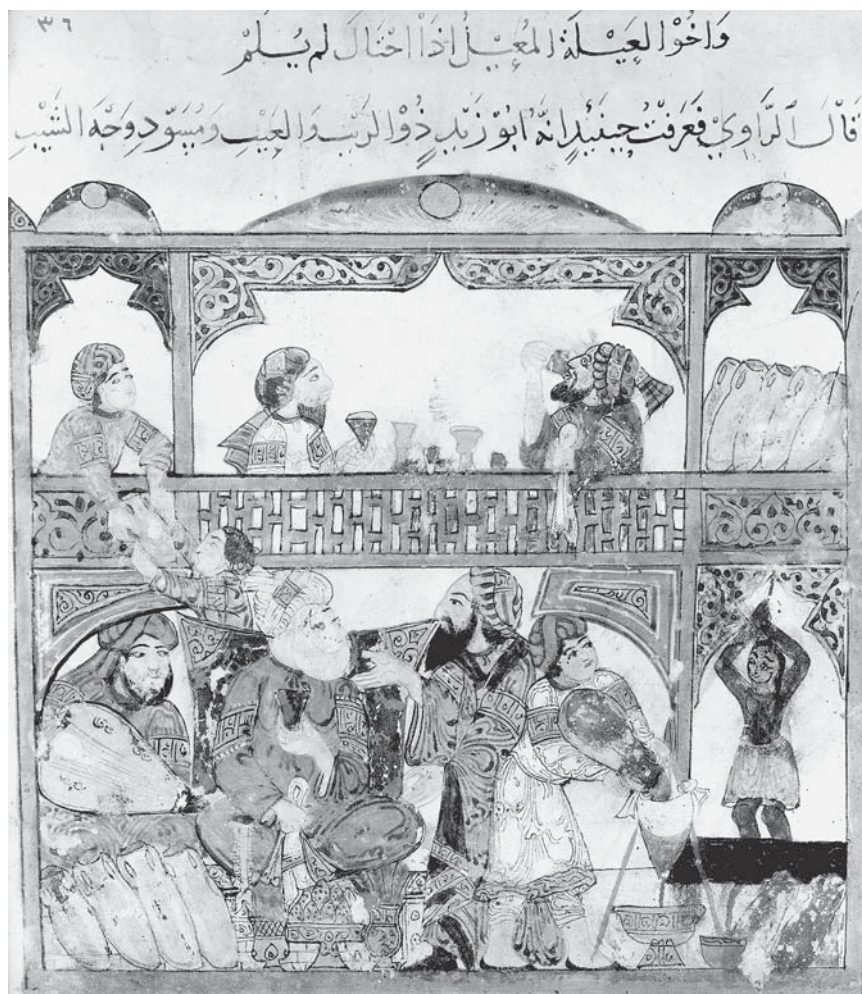 ٣٦
وَاخُوْا العَيْلَةِ المُعِيْلُ اِذَا احْتَالَ لَم يُلَمْ
قَالَ الرَّاوِيْ فَعَرَفْتُ حِينَئِذٍ انَّهُ ابُوْ زَيْدٍ ذُوْ الرَيْبِ وَالعَيْبِ وَمُسَوِّدِ وَجْهِ الشَيْبِ